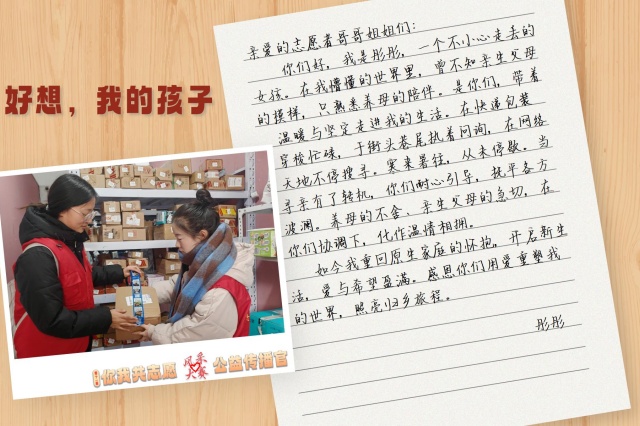 好想，我的孩子
亲爱的志愿者哥哥姐姐们：
你们好，我是彤彤，一个不小心走丢的
女孩。在我懵懂的世界里，曾不知亲生父母
的模样，只熟悉养母的陪伴。是你们，带着
温暖与坚定走进我的生活。在快递包装
穿梭忙碌，于街头巷尾执着问询，在网络
天地不停搜寻。寒来暑往，从未停歇。当
寻亲有了转机，你们耐心引导，抚平各方
波澜。养母的不舍、亲生父母的急切，在
你们协调下，化作温情相拥。
如今我重回原生家庭的怀抱，开启新生
活，爱与希望盈满。感恩你们用爱重塑我
的世界，照亮归乡旅程。
彤彤
你我共志愿
风采
大赛
公益传播官